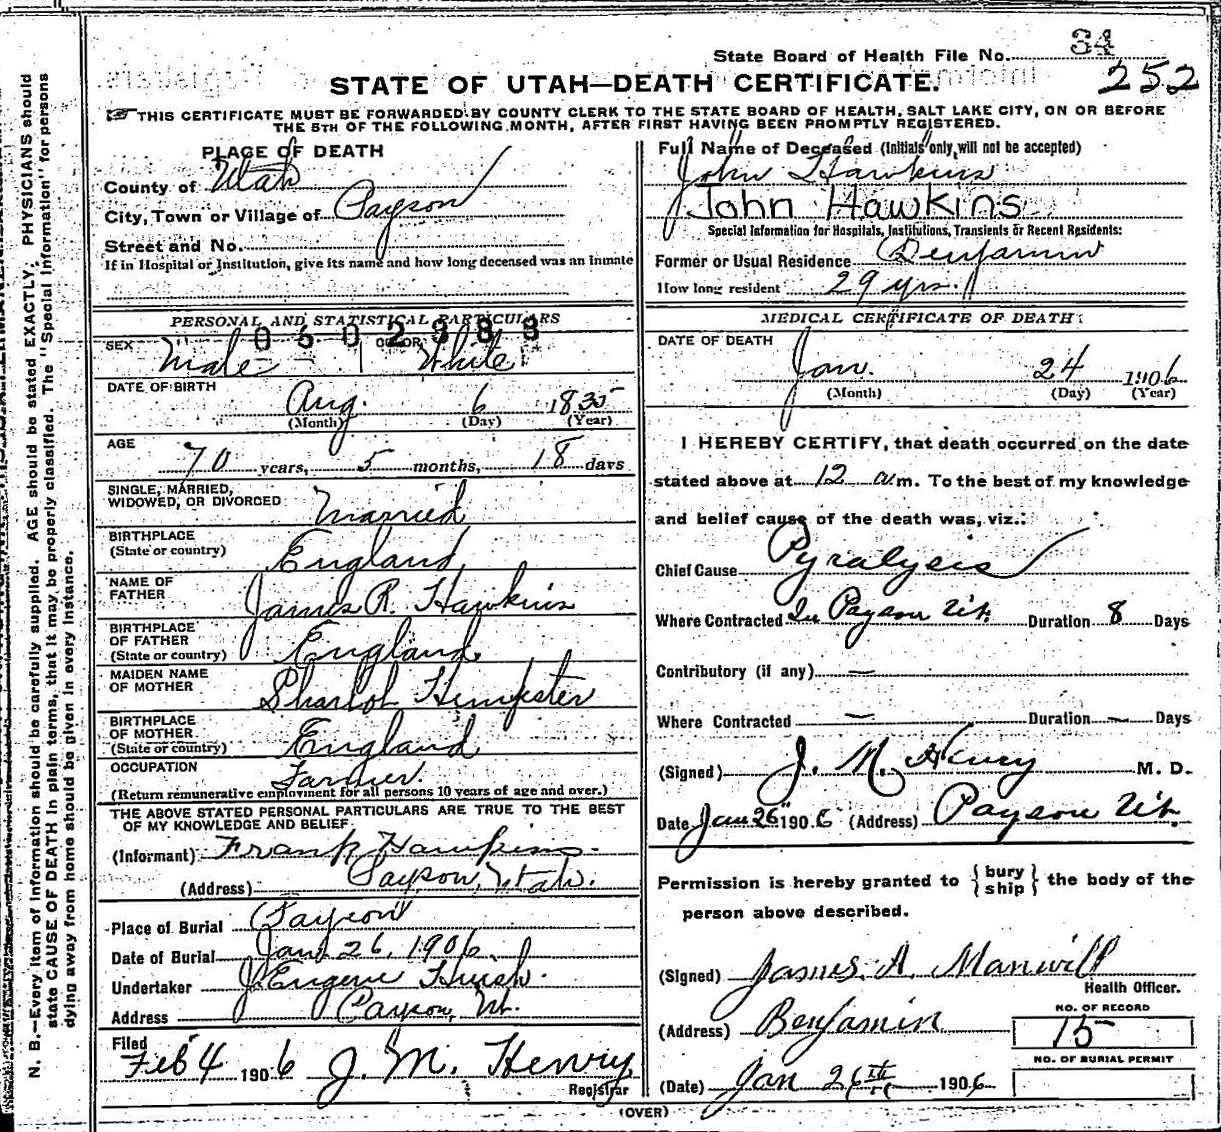 State Board of Health File No. 34
252
STATE OF UTAH—DEATH CERTIFICATE.
THIS CERTIFICATE MUST BE FORWARDED BY COUNTY CLERK TO THE STATE BOARD OF HEALTH, SALT LAKE CITY, ON OR BEFORE
THE 5TH OF THE FOLLOWING MONTH, AFTER FIRST HAVING BEEN PROMPTLY REGISTERED.
PLACE OF DEATH
County of Utah
City, Town or Village of Payson
Street and No.
If in Hospital or Institution, give its name and how long deceased was an inmate
PERSONAL AND STATISTICAL PARTICULARS
0602388
SEX Male COLOR White
DATE OF BIRTH
Aug. 6 1835
(Month) (Day) (Year)
AGE
70 years, 5 months, 18 days
SINGLE, MARRIED,
WIDOWED, OR DIVORCED Married
BIRTHPLACE
(State or country) England
NAME OF
FATHER James R. Hawkins
BIRTHPLACE
OF FATHER
(State or country) England
MAIDEN NAME
OF MOTHER Sharlot Hempster
BIRTHPLACE
OF MOTHER
(State or country) England
OCCUPATION Farmer.
(Return remunerative employment for all persons 10 years of age and over.)
THE ABOVE STATED PERSONAL PARTICULARS ARE TRUE TO THE BEST
OF MY KNOWLEDGE AND BELIEF.
(Informant) Frank Hawkins
(Address) Payson, Utah.
Place of Burial Payson
Date of Burial Jan 26, 1906
Undertaker J. Eugene Huish.
Address Payson, Ut.
Filed
Feb 4 1906 J. M. Henry
Registrar
Full Name of Deceased (Initials only will not be accepted)
John Hawkins
John Hawkins
Special Information for Hospitals, Institutions, Transients or Recent Residents:
Former or Usual Residence Benjamin
How long resident 29 yrs.
MEDICAL CERTIFICATE OF DEATH
DATE OF DEATH
Jan. 24 1906
(Month) (Day) (Year)
I HEREBY CERTIFY, that death occurred on the date
stated above at 12 a.m. To the best of my knowledge
and belief cause of the death was, viz.:
Chief Cause Pyralysis
Where Contracted In Payson Ut. Duration 8 Days
Contributory (if any) —
Where Contracted — Duration — Days
(Signed) J. M. Henry M. D.
Date Jan 26" 1906 (Address) Payson Ut.
Permission is hereby granted to { bury
ship } the body of the
person above described.
(Signed) James A. Manwill
Health Officer.
(Address) Benjamin
NO. OF RECORD
15
NO. OF BURIAL PERMIT
(Date) Jan 26th 1906
(OVER)
N. B.—Every item of information should be carefully supplied. AGE should be stated EXACTLY. PHYSICIANS should
state CAUSE OF DEATH in plain terms, that it may be properly classified. The "Special Information" for persons
dying away from home should be given in every instance.